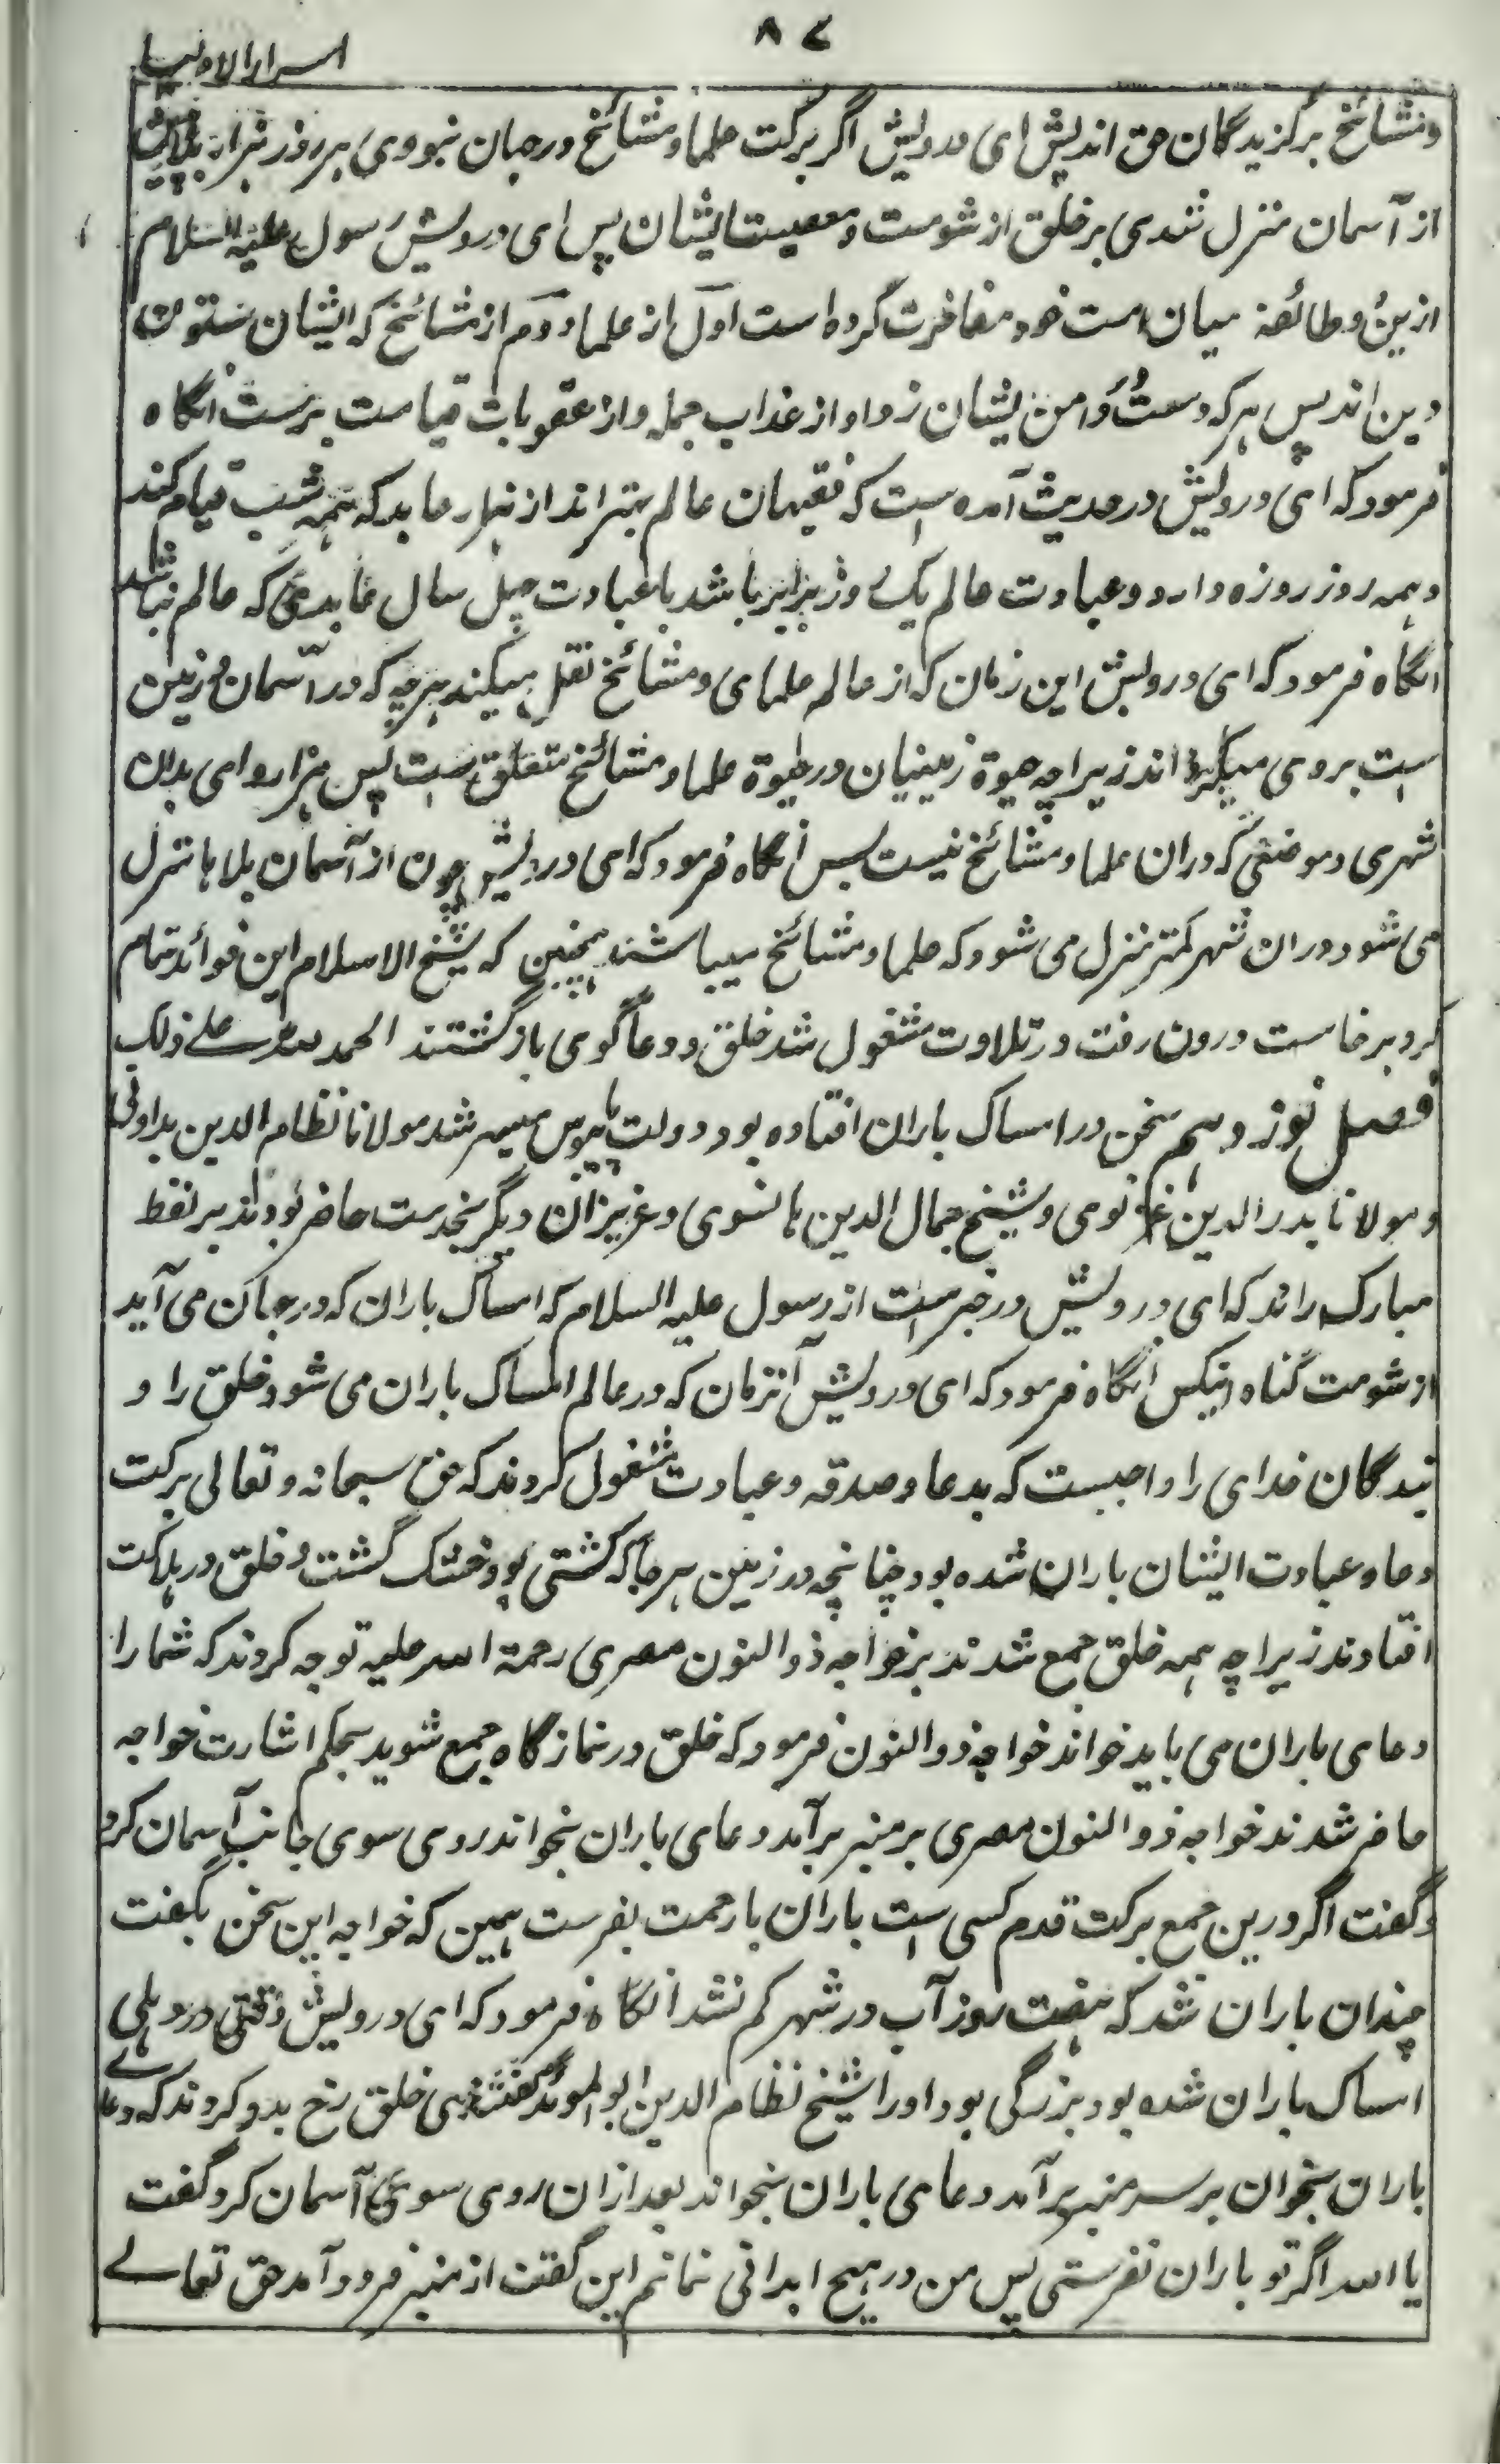 ۸۷
اسرار الاولیا
ومشائخ برگزیدگان حق اندپس ای درویش اگر برکت علما ومشائخ درجهان نبودی هر روز هزار بلای
از آسمان منزل شدی بر خلق از شومت ومعصیت ایشان پس ای درویش رسول علیه السلام
ازین دو طائفه میان امت خود مفاخرت کرده است اول از علما ودوم از مشائخ که ایشان ستون
دین اند پس هرکه دست در دامن ایشان زد او از عذاب جمله واز عقوبات قیامت برست انگاه
فرمود که ای درویش در حدیث آمده است که فقیهان عالم بهتر اند از هزار عابد که همه شب قیام کند
وهمه روز روزه دارد وعبادت عالم یک روز برابر باشد با عبادت چهل سال عابدی که عالم نباشد
انگاه فرمود که ای درویش این زمان که از عالم علمای ومشائخ نقل میکنند هرچه که در آسمان و زمین
است بروی میگریند از زیراچه حیوة زمینیان در حیوة علما ومشائخ متعلق است پس هزار وای بدان
شهری وموضعی که دران علما ومشائخ نیست پس انگاه فرمود که ای درویش چون از آسمان بلاها منزل
می شود دران شهر کمتر منزل می شود که علما ومشائخ میباشند همچنین که شیخ الاسلام این فوائد تمام
کرد برخاست درون رفت در تلاوت مشغول شد خلق ودعاگوی بازگشتند الحمد لله علے ذلک
فصل نوزدهم سخن در امساک باران افتاده بود دولت پابوس میسر شد مولانا نظام الدین بداونی
ومولانا بدر الدین غزنوی وشیخ جمال الدین هانسوی وعزیزان دیگر بخدمت حاضر بودند بر لفظ
مبارک راند که ای درویش در خبر است از رسول علیه السلام که امساک باران که در جهان می آید
از شومت گناه انیکس انگاه فرمود که ای درویش آنزمان که در عالم امساک باران می شود خلق را و
بندگان خدای را واجبست که بدعا وصدقه وعبادت مشغول کردند که حق سبحانه وتعالی برکت
دعا وعبادت ایشان باران شده بود چنانچه در زمین هرجا که کشتی بود خشک گشت وخلق در هلاکت
افتادند زیراچه همه خلق جمع شدند بر خواجه ذوالنون مصری رحمة الله علیه توجه کردند که شما را
دعای باران می باید خواند خواجه ذوالنون فرمود که خلق در نمازگاه جمع شوید بحکم اشارت خواجه
حاضر شدند خواجه ذوالنون مصری بر منبر برآمد دعای باران بخواند روی سوی جانب آسمان کرد
وگفت اگر درین جمع برکت قدم کسی است باران بارحمت بفرست همین که خواجه این سخن بگفت
چندان باران شد که هفت روز آب در شهر کم نشد انگاه فرمود که ای درویش وقتی در دهلی
امساک باران شده بود بزرگی بود اورا شیخ نظام الدین ابو الموید گفتندی خلق رخ بدو کردند که دعاے
باران بخوان بر سر منبر برآمد دعای باران بخواند بعد ازان روی سوی آسمان کرد گفت
یا الله اگر تو باران نفرستی پس من در هیچ ابدانی نمانم این گفت از منبر فرود آمد حق تعالے